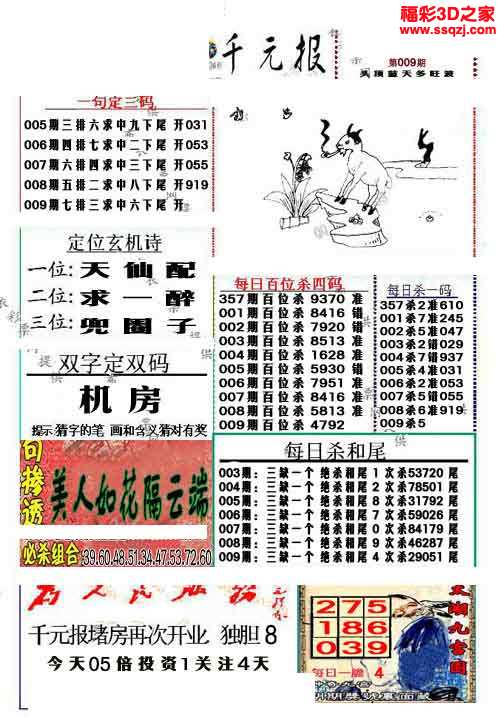 福彩3D之家
www.ssqzj.com
千元报
第009期
头顶蓝天多旺波
一句定三码
005期三排六求中九下尾 开031
006期四排七求中二下尾 开053
007期六排四求中三下尾 开055
008期五排二求中八下尾 开919
009期七排三求中六下尾 开
定位玄机诗
一位:天仙配
二位:求一醉
三位:兜圈子
双字定双码
机房
提示:猜字的笔 画和含义猜对有奖
每日百位杀四码
357期百位杀 9370 准
001期百位杀 8416 错
002期百位杀 7920 错
003期百位杀 8513 准
004期百位杀 1628 准
005期百位杀 5930 错
006期百位杀 7951 准
007期百位杀 8416 准
008期百位杀 5813 准
009期百位杀 4792
每日杀一码
357杀2准610
001杀7准245
002杀5准047
003杀2错029
004杀7错937
005杀4准031
006杀2准053
007杀5错055
008杀6准919
009杀5
句掺诱
美人如花隔云端
必杀组合 39.60.48.51.34.47.53.72.60
每日杀和尾
003期: 三缺一个 绝杀和尾 1 次杀53720 尾
004期: 三缺一个 绝杀和尾 2 次杀78501 尾
005期: 三缺一个 绝杀和尾 8 次杀31792 尾
006期: 三缺一个 绝杀和尾 7 次杀59026 尾
007期: 三缺一个 绝杀和尾 0 次杀84179 尾
008期: 三缺一个 绝杀和尾 9 次杀46287 尾
009期: 三缺一个 绝杀和尾 4 次杀29051 尾
为人民服务
千元报堵房再次开业 独胆 8
今天05倍投资1关注4天
太湖九宫图
275
186
039
每日一胆 4